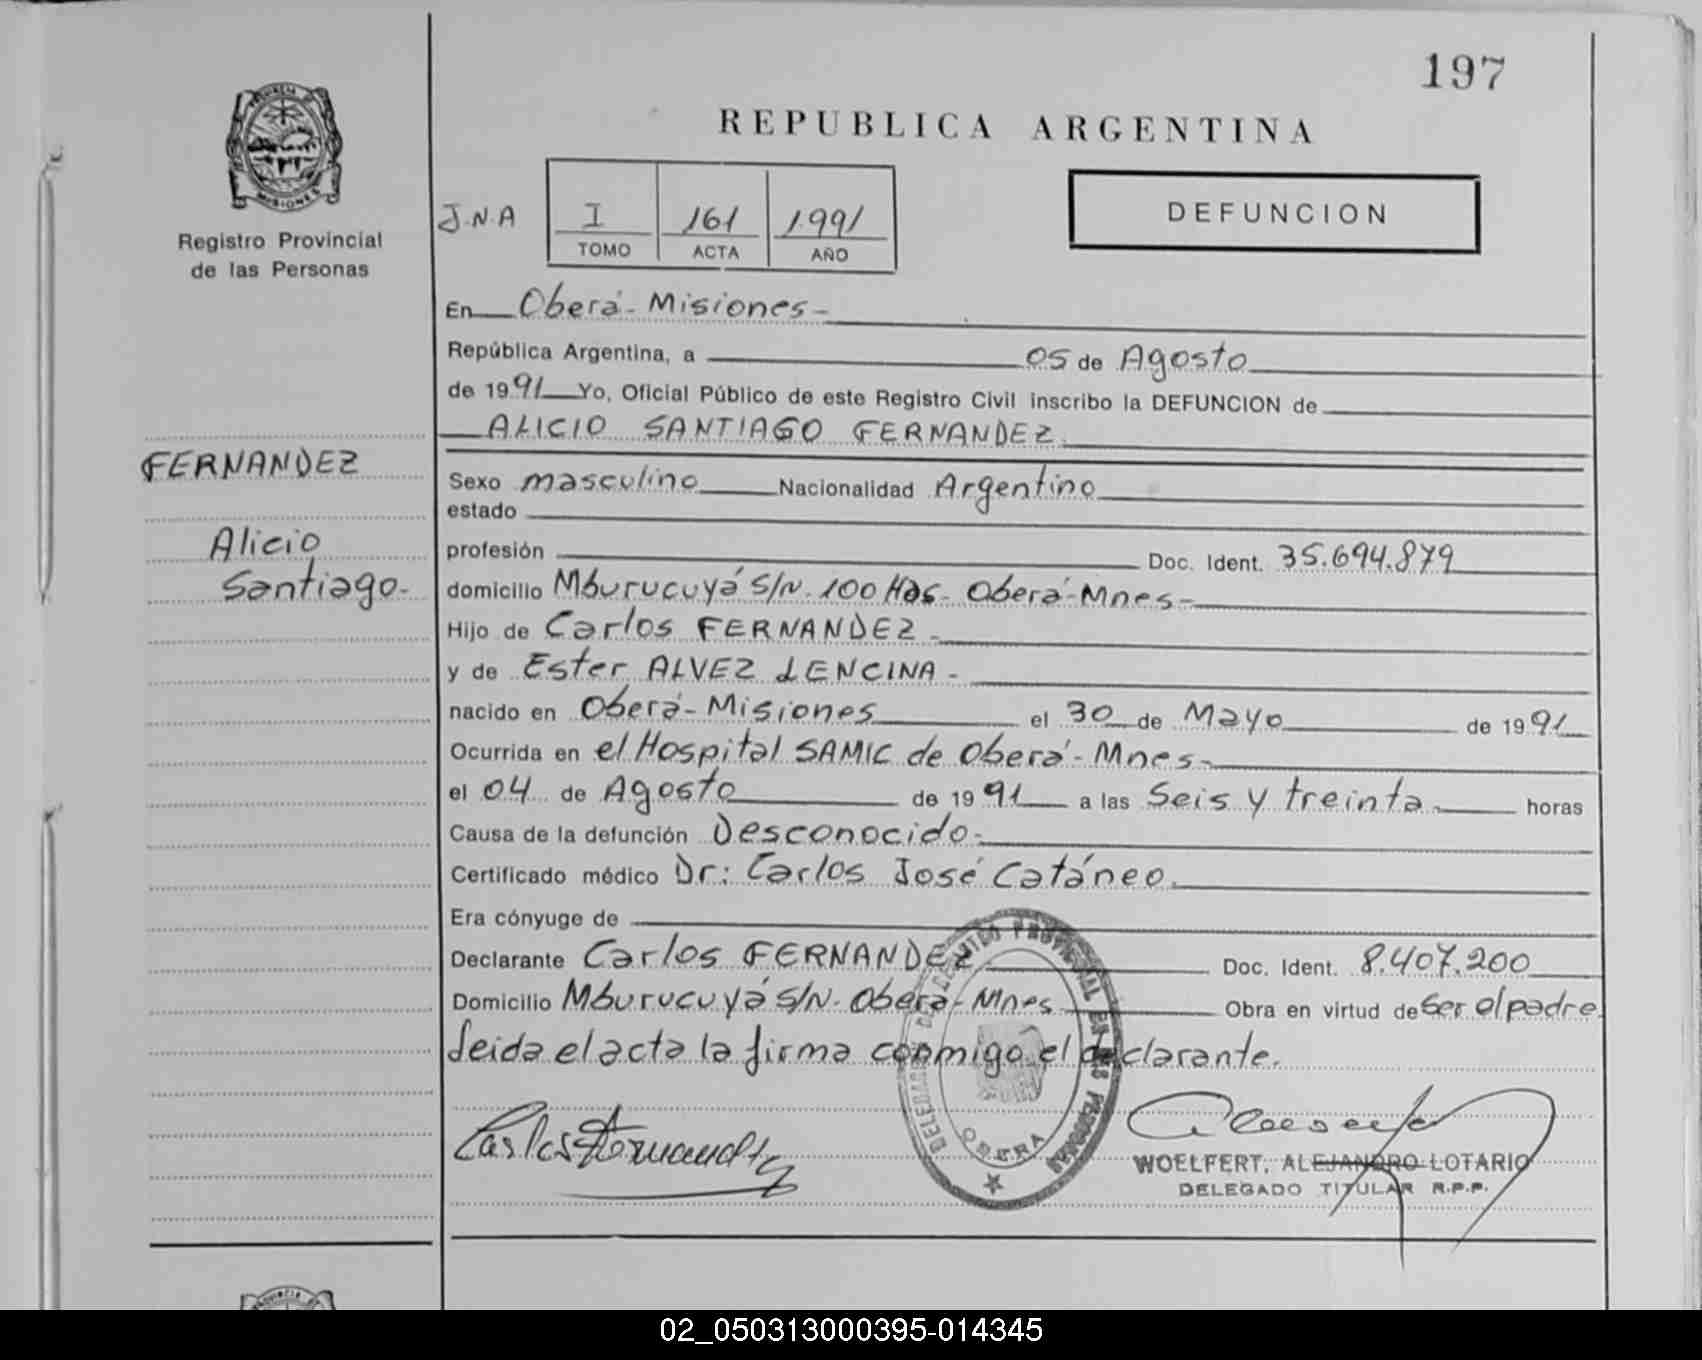 197
REPUBLICA ARGENTINA
PROVINCIA DE
MISIONES
Registro Provincial
de las Personas
J.N.A
I 161 1991
TOMO ACTA AÑO
DEFUNCION
En Oberá - Misiones -
República Argentina, a 05 de Agosto
de 1991 Yo, Oficial Público de este Registro Civil inscribo la DEFUNCION de
ALICIO SANTIAGO FERNANDEZ
FERNANDEZ
Alicio
Santiago-
Sexo masculino Nacionalidad Argentino
estado
profesión Doc. Ident. 35.694.879
domicilio Mburucuyá S/N. 100 Has- Oberá-Mnes-
Hijo de Carlos FERNANDEZ -
y de Ester ALVEZ LENCINA -
nacido en Oberá - Misiones el 30 de Mayo de 1991
Ocurrida en el Hospital SAMIC de Oberá - Mnes-
el 04 de Agosto de 1991 a las Seis y treinta horas
Causa de la defunción Desconocido-
Certificado médico Dr: Carlos José Catáneo.
Era cónyuge de
Declarante Carlos FERNANDEZ Doc. Ident. 8.407.200
Domicilio Mburucuyá S/N. Oberá-Mnes Obra en virtud de Ser el padre.
Leida el acta la firma conmigo el declarante.
Carlos Fernandez
OBERA
WOELFERT, ALEJANDRO LOTARIO
DELEGADO TITULAR R.P.P.
PROVINCIA DE
02_050313000395-014345